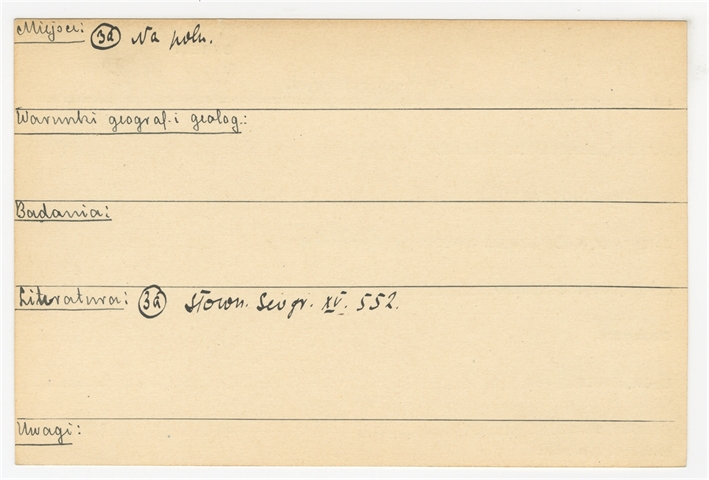 Miejsce: 3a Na polu.
Warunki geograf. i geolog.:
Badania:
Literatura: 3a Słown. Geogr. XV. 552.
Uwagi: